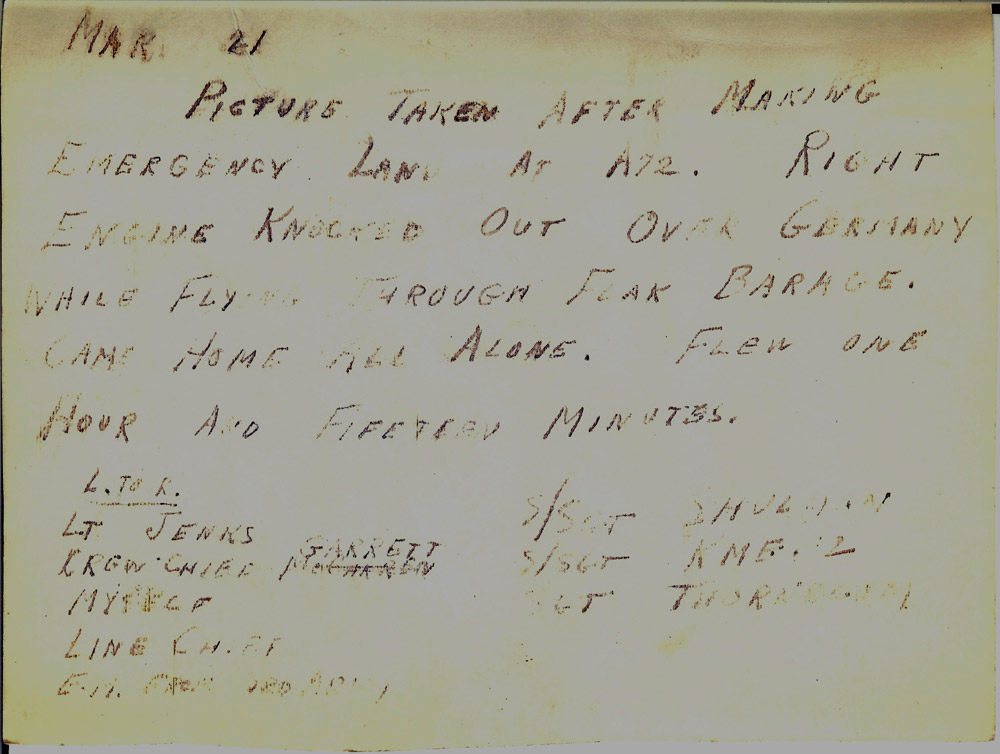 MAR. 21
PICTURE TAKEN AFTER MAKING
EMERGENCY LAND AT A72. RIGHT
ENGINE KNOCKED OUT OVER GERMANY
WHILE FLYING THROUGH FLAK BARAGE.
CAME HOME ALL ALONE. FLEW ONE
HOUR AND FIFETEEN MINUTES.
L. TO R.
LT JENKS
GARRETT
KREW CHIEF
MYSELF
LINE CHIEF
E.M. FROM
S/SGT SHULMAN
S/SGT
SGT